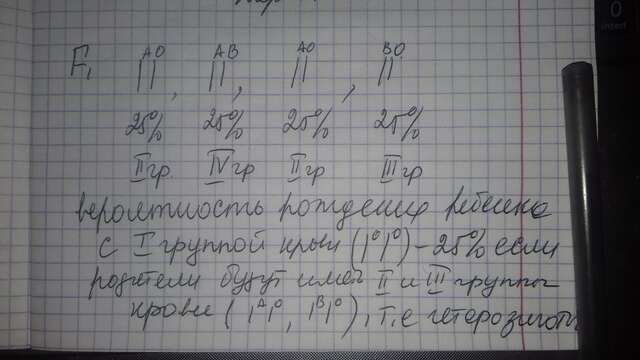 F₁ IᴬIᴼ, IᴬIᴮ, IᴬIᴼ, IᴮIᴼ
25% 25% 25% 25%
II гр. IV гр II гр III гр
вероятность рождения ребенка
с I группой крови (I⁰I⁰) – 25% если
родители будут иметь II и III группы
крови (IᴬI⁰, IᴮI⁰), т.е гетерозиготы
0
insert